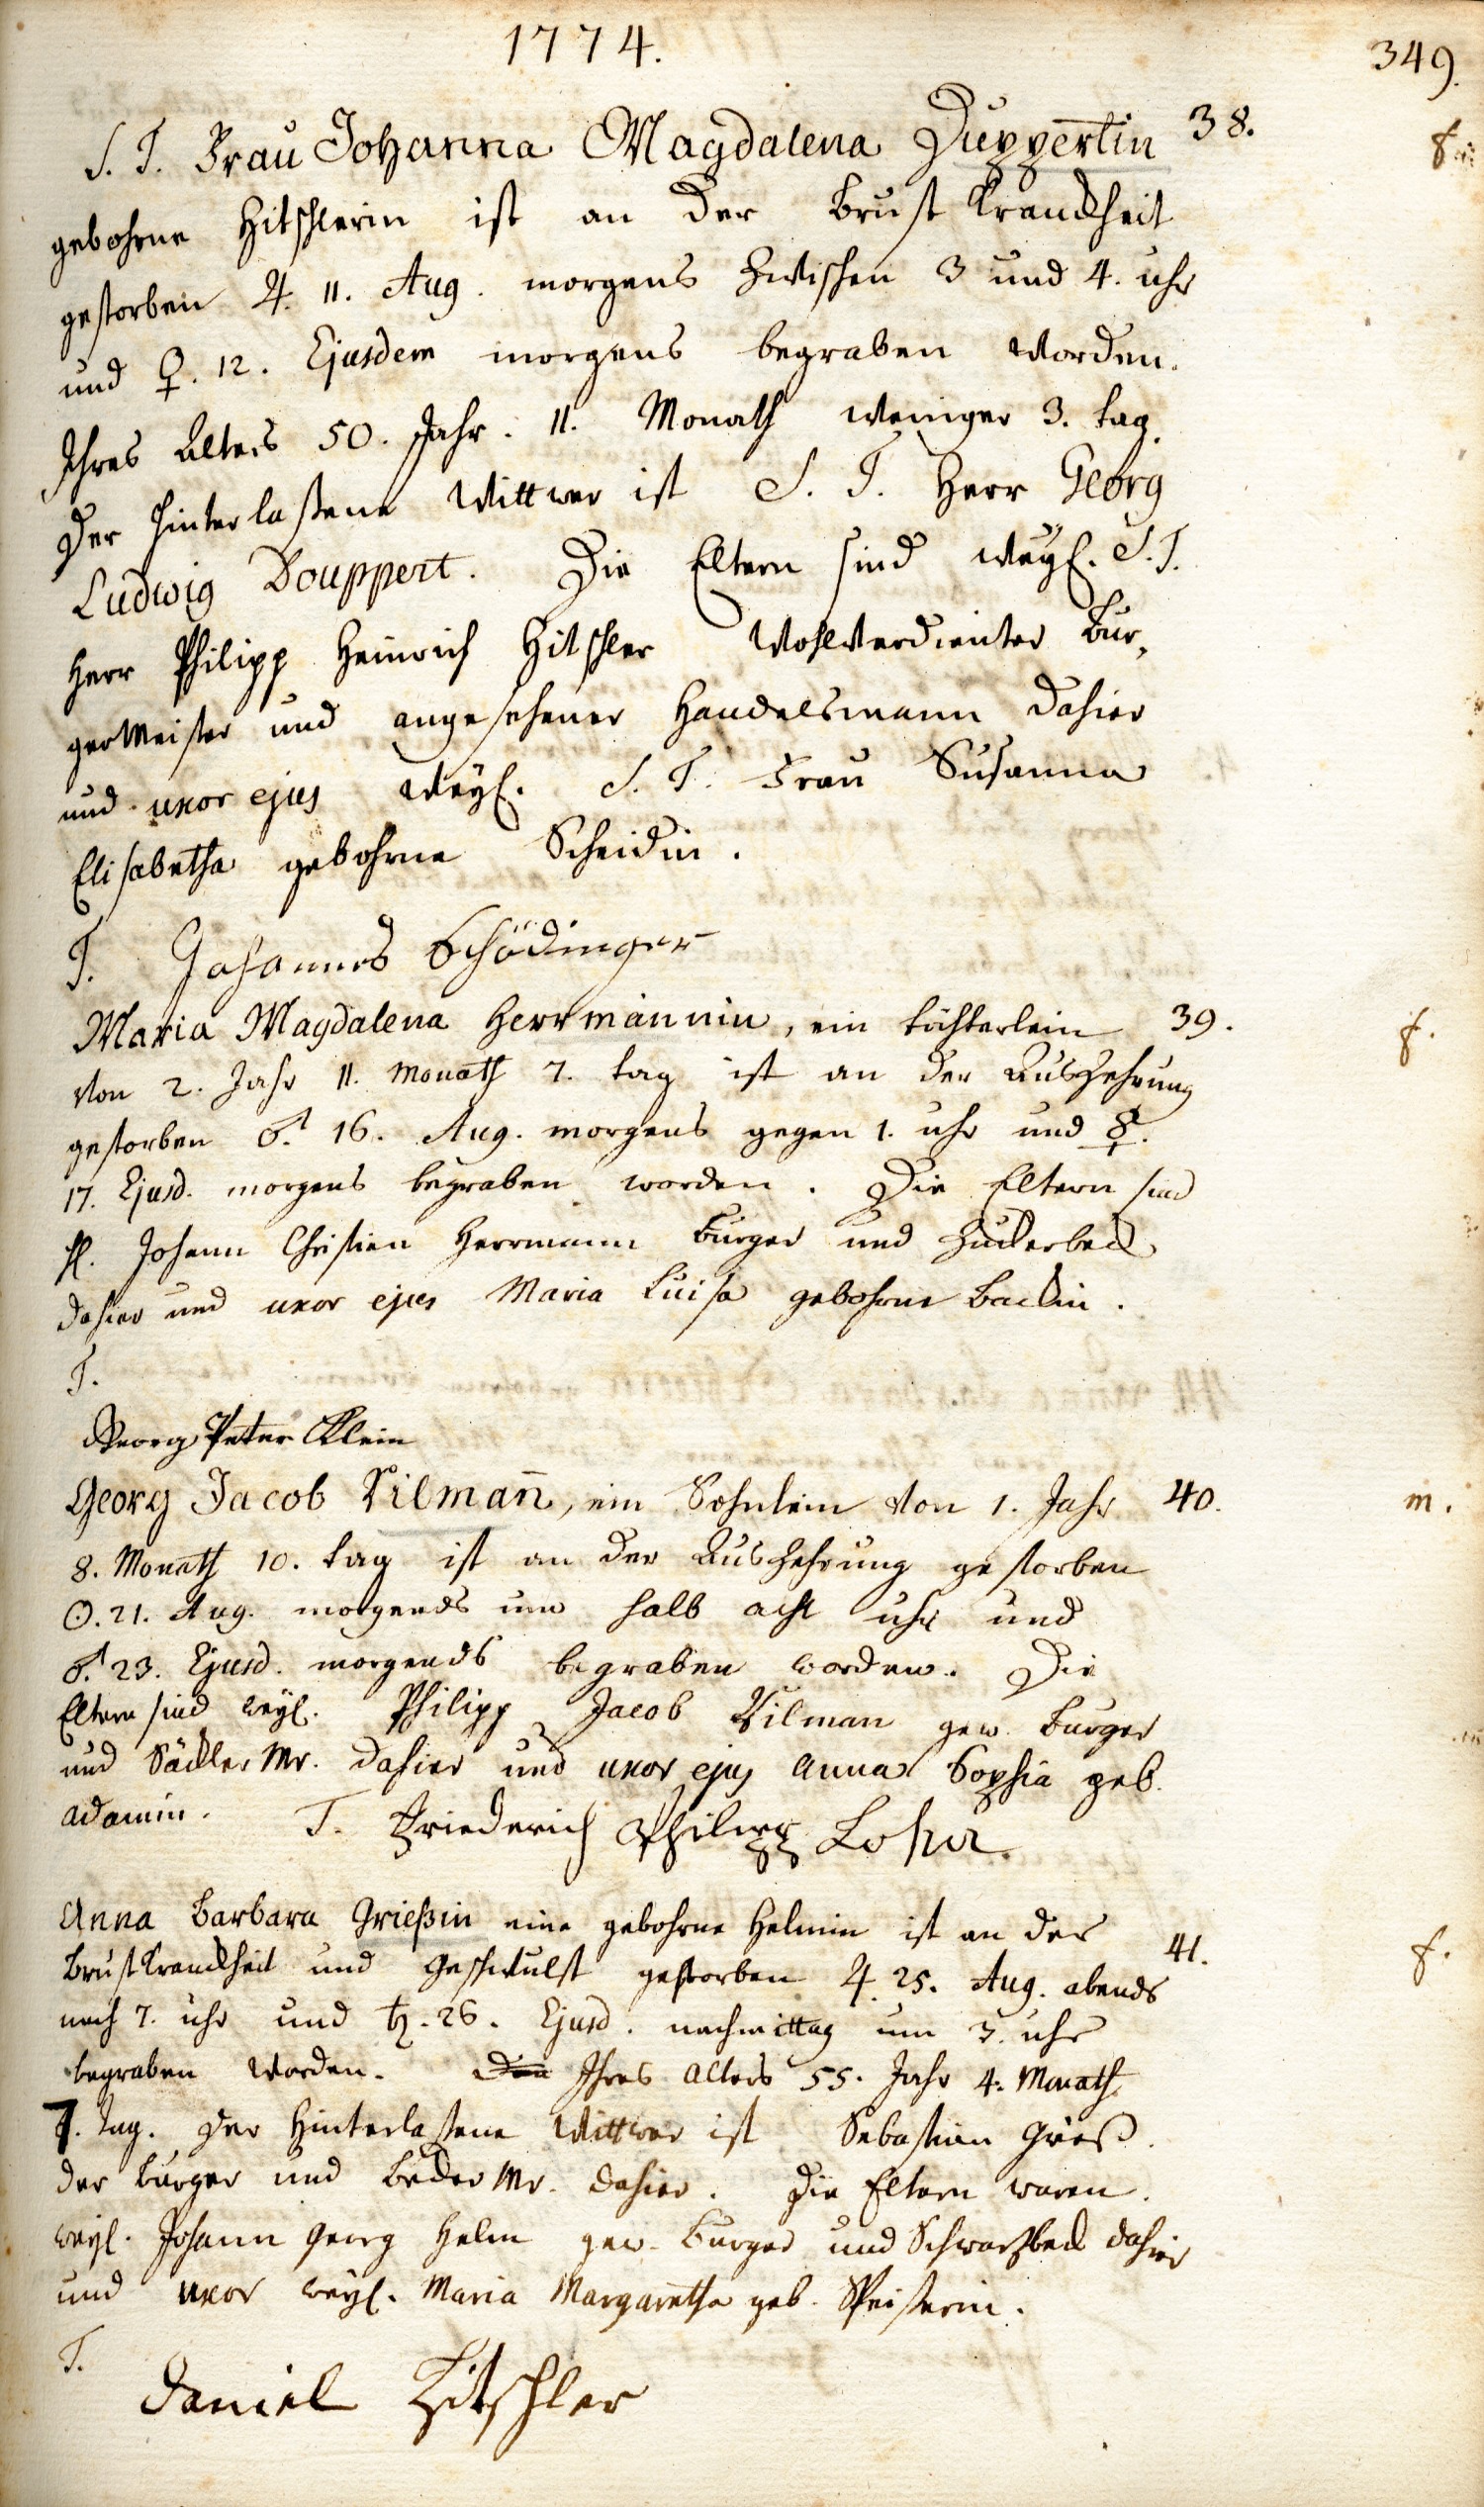 1774.
349.
S. T. Frau Johanna Magdalena Duppertin 38. f.
gebohrne Hitschlerin ist an der Brust Kranckheit
gestorben ♃. 11. Aug. morgens zwischen 3 und 4. uhr
und ♀. 12. Ejusdem morgens begraben worden.
Ihres Alters 50. Jahr. 11. Monath weniger 3. tag.
Der hinterlaßene Wittwer ist S. T. Herr Georg
Ludwig Douppert. Die Eltern sind weyl. S. T.
Herr Philipp Heinrich Hitschler wohlverdienter Bur,
germeister und angesehener Handelsmann dahier
und uxor ejus weyl. S. T. Frau Susanna
Elisabetha gebohrne Scheidin.
T. Johannes Schödinger
Maria Magdalena Herrmännin, ein töchterlein 39. f.
von 2. Jahr 11. Monath 7. tag ist an der Auszehrung
gestorben ♂. 16. Aug. morgens gegen 1. uhr und ☿.
17. Ejusd. morgens begraben worden. Die Eltern sind
H. Johann Christian Herrmann Burger und Zuckerbeck
dahier und uxor ejus Maria Luisa gebohrne Backin.
T.
Georg Peter Klein
Georg Jacob Vilmañ, ein Söhnlein von 1. Jahr 40. m.
8. Monath 10. tag ist an der Auszehrung gestorben
☉. 21. Aug. morgends um halb acht uhr und
♂. 23. Ejusd. morgends begraben worden. Die
Eltern sind weyl. Philipp Jacob Vilman gew. Burger
und Säckler Mr. dahier und uxor ejus Anna Sophia geb.
Adamin. T. Friederich Philipp Lohr
Anna Barbara Grießin eine gebohrne Helmin ist an der 41. f.
Brustkranckheit und Geschwulst gestorben ♃. 25. Aug. abends
nach 7. uhr und ♄. 26. Ejusd. nachmittag um 3. uhr
begraben worden. Den Ihres Alters 55. Jahr 4. Monath
7. Tag. Der Hinterlaßene Wittwer ist Sebastian Grieß.
der Burger und Bader Mr. dahier. Die Eltern waren.
weyl. Johann Georg Helm gew. Burger und Schwarzbeck dahier
und uxor weyl. Maria Margaretha geb. Speiserin.
T.
Daniel Hitschler